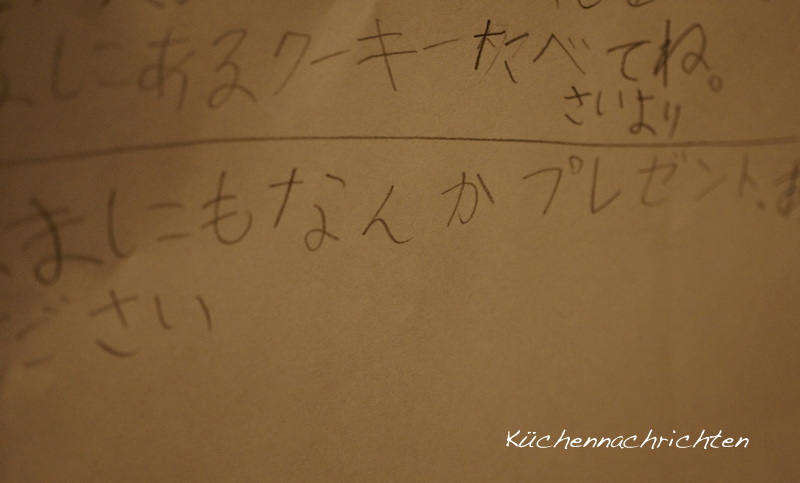 しにあるクーキーたべてね。
さいより
ましにもなんかプレゼント、ま
ださい
Küchennachrichten